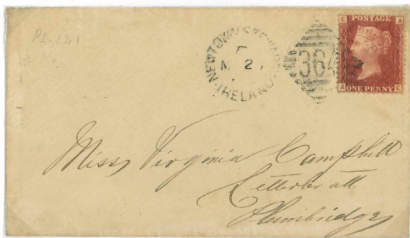 PL 121
NEWTOWNSTEWART
F
M 2
IRELAND
364
POSTAGE
ONE PENNY
Miss Virginia Campbell
Letterbratt
Plumbridge